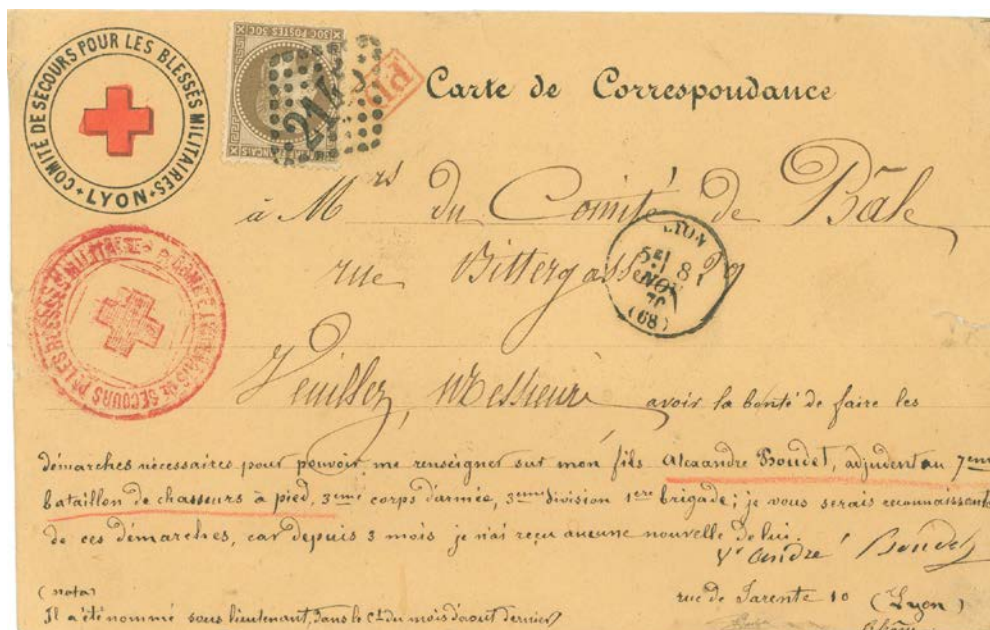 COMITÉ DE SECOURS POUR LES BLESSÉS MILITAIRES
LYON
SOC POSTES SOC
FRANÇAIS
214
PD
Carte de Correspondance
à Mrs du Comité de Bâle
rue Bittergasse 29
LYON
5E 8
NOV
70
(68)
SECOURS Pr LES BLESSÉS MILITAIRES
Veuillez, Messieurs avoir la bonté de faire les
démarches nécessaires pour pouvoir me renseigner sur mon fils Alexandre Boudet, adjudent au 7eme
bataillon de chasseurs à pied, 3eme corps d'armée, 3eme division 1ere brigade; je vous serais reconnaissante
de ces démarches, car depuis 3 mois je n'ai reçu aucune nouvelle de lui.
Ve André Boudet
(nota)
rue de Jarente 10 (Lyon)
Il a été nommé sous lieutenant, dans le Ct du mois d'aout dernier